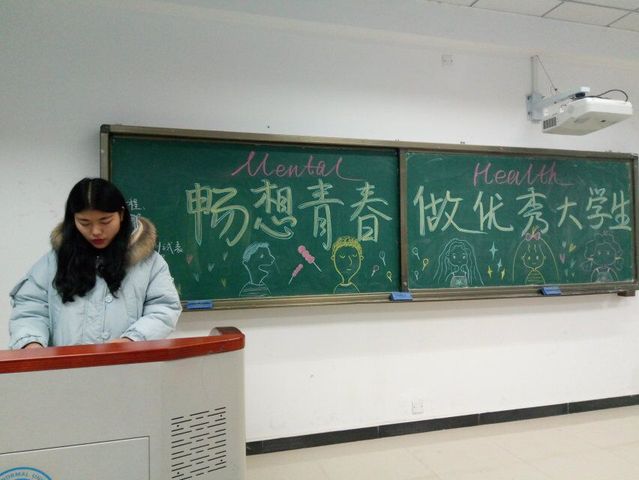 Mental Health
畅想青春 做优秀大学生
程
代表
NORMAL UNI